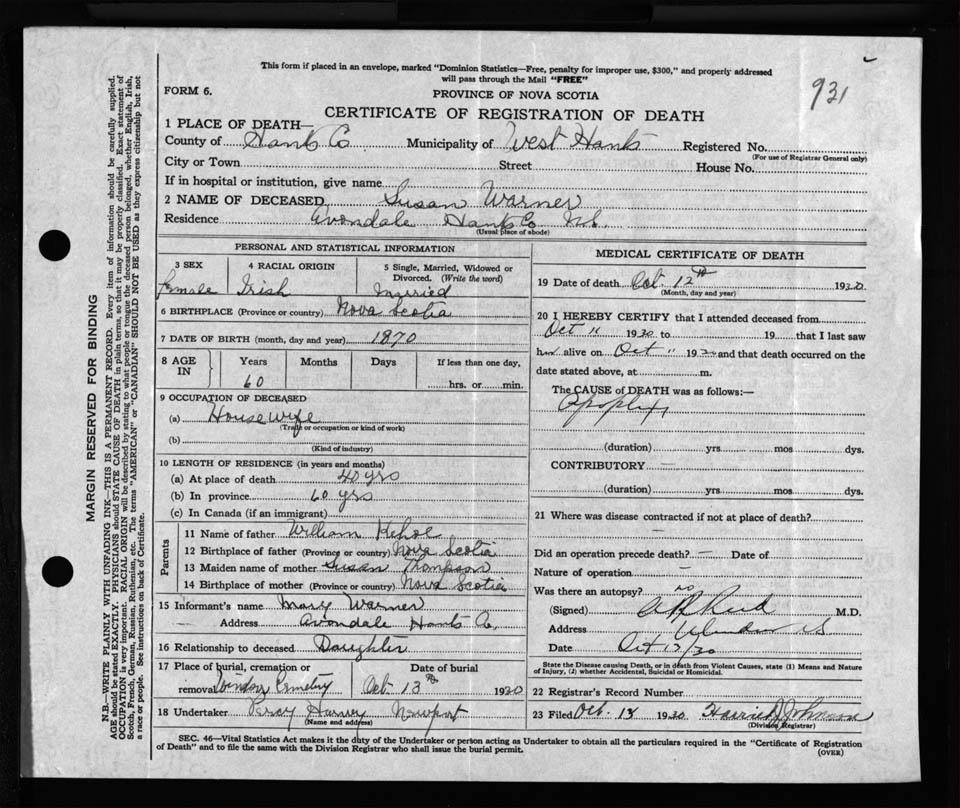 This form if placed in an envelope, marked "Dominion Statistics—Free, penalty for improper use, $300," and properly addressed
will pass through the Mail "FREE"
931
FORM 6.
PROVINCE OF NOVA SCOTIA
CERTIFICATE OF REGISTRATION OF DEATH
1 PLACE OF DEATH—
County of Hants Co Municipality of West Hants Registered No.
(For use of Registrar General only)
City or Town Street House No.
If in hospital or institution, give name
2 NAME OF DECEASED Susan Warner
Residence Avondale Hants Co N.S.
(Usual place of abode)
PERSONAL AND STATISTICAL INFORMATION
3 SEX 4 RACIAL ORIGIN 5 Single, Married, Widowed or
Divorced. (Write the word)
female Irish Married
6 BIRTHPLACE (Province or country) Nova Scotia
7 DATE OF BIRTH (month, day and year) 1870
8 AGE IN Years Months Days If less than one day,
60 hrs. or min.
9 OCCUPATION OF DECEASED
(a) House wife
(Trade or occupation or kind of work)
(b)
(Kind of industry)
10 LENGTH OF RESIDENCE (in years and months)
(a) At place of death 40 yrs
(b) In province 60 yrs
(c) In Canada (if an immigrant)
Parents
11 Name of father William Kehoe
12 Birthplace of father (Province or country) Nova Scotia
13 Maiden name of mother Susan Thompson
14 Birthplace of mother (Province or country) Nova Scotia
15 Informant's name Mary Warner
Address Avondale Hants Co.
16 Relationship to deceased Daughter
17 Place of burial, cremation or Date of burial
removal Windsor Cemetery Oct. 13th 1930
18 Undertaker Percy Harvey Newport
(Name and address)
MEDICAL CERTIFICATE OF DEATH
19 Date of death Oct. 12th 1930
(Month, day and year)
20 I HEREBY CERTIFY that I attended deceased from
Oct 11 1930 to 19 that I last saw
her alive on Oct 11 1930 and that death occurred on the
date stated above, at m.
The CAUSE of DEATH was as follows:—
Apoplexy
(duration) yrs mos dys.
CONTRIBUTORY
(duration) yrs mos dys.
21 Where was disease contracted if not at place of death?
Did an operation precede death? — Date of
Nature of operation —
Was there an autopsy? no
(Signed) Reid M.D.
Address Windsor NS
Date Oct 13/30
State the Disease causing Death, or in death from Violent Causes, state (1) Means and Nature
of Injury, (2) whether Accidental, Suicidal or Homicidal.
22 Registrar's Record Number
23 Filed Oct. 13 1930 Harris Johnson
(Division Registrar)
SEC. 46—Vital Statistics Act makes it the duty of the Undertaker or person acting as Undertaker to obtain all the particulars required in the "Certificate of Registration
of Death" and to file the same with the Division Registrar who shall issue the burial permit.
(OVER)
MARGIN RESERVED FOR BINDING
N.B.—WRITE PLAINLY WITH UNFADING INK—THIS IS A PERMANENT RECORD. Every item of information should be carefully supplied.
AGE should be stated EXACTLY. PHYSICIANS should STATE CAUSE OF DEATH in plain terms, so that it may be properly classified. Exact statement of
OCCUPATION is very important. RACIAL ORIGIN will be described by stating to what people or tongue the deceased person belonged, whether English, Irish,
Scotch, French, German, Russian, Ruthenian, etc. The terms "AMERICAN" or "CANADIAN" SHOULD NOT BE USED as they express citizenship but not
a race or people. See instructions on back of Certificate.